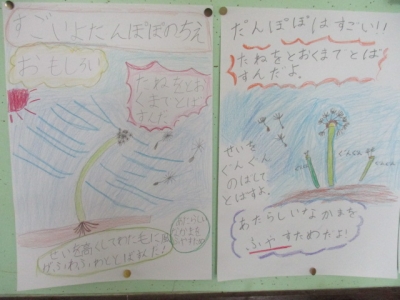 すごいよたんぽぽのちえ
おもしろい
たねをとお
くまでとば
すんだ!
せいを高くしてわた毛に風
があたらしい
なかまを
ふやすため
だんぽぽはすごい!!
たねをとおくまでとば
すんだよ。
せいを
ぐんぐん
のばして
とばすよ。
ぐんぐん
あたらしいなかまを
ふやすためだよ!